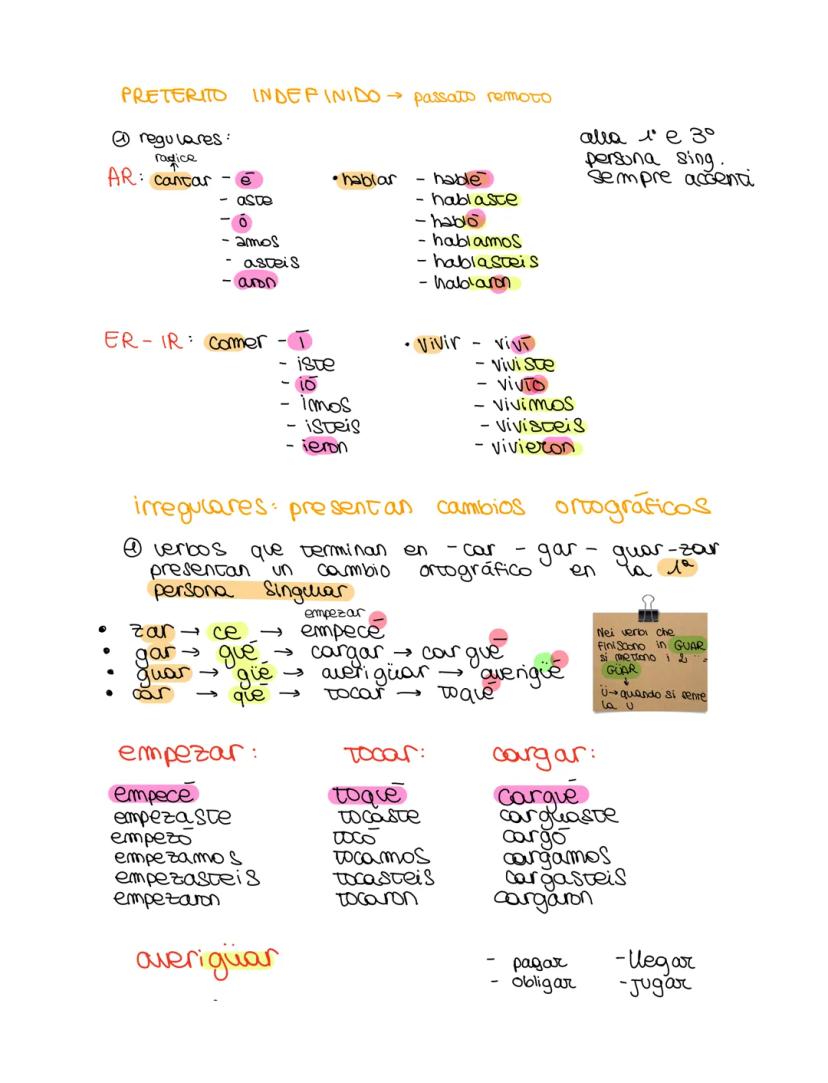 PRETERITO INDEFINIDO → passato remoto
① regulares:
radice
AR: cantar - é
- aste
- ó
- amos
- asteis
- aron
• hablar - hablé
- hablaste
- habló
- hablamos
- hablasteis
- hablaron
alla 1ª e 3º
persona sing.
sempre accenti
ER - IR: comer - í
- iste
- ió
- imos
- isteis
- ieron
• vivir - viví
- viviste
- vivió
- vivimos
- vivisteis
- vivieron
irregulares: presentan cambios ortográficos
① verbos que terminan en -car - gar - guar -zar
presentan un cambio ortográfico en la 1ª
persona singular
empezar
• zar → ce → empecé
• gar → gué → cargar → cargué
• guar → güé → averigüar → averigüé
• car → qué → tocar → toqué
Nei verbi che
finiscono in GUAR
si mettono i 2 ¨
GÜAR
↓
Ü → quando si sente
la U
empezar:
empecé
empezaste
empezó
empezamos
empezasteis
empezaron
tocar:
toqué
tocaste
tocó
tocamos
tocasteis
tocaron
cargar:
cargué
carguaste
cargó
cargamos
cargasteis
cargaron
averigüar
- pagar
- obligar
- llegar
- jugar